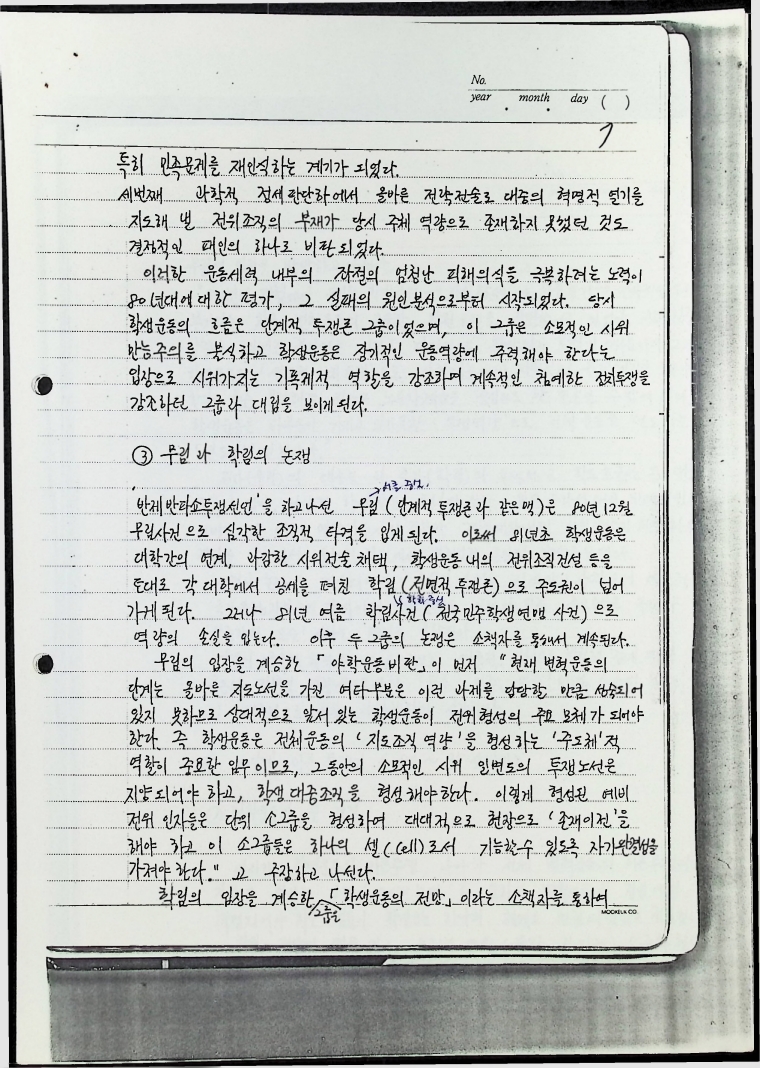 No.
year month day ( )
7
특히 민족문제를 재인식하는 계기가 되었다.
세번째 과학적 정세판단하에서 올바른 전략전술로 대중의 혁명적 열기를
지도해 낼 전위조직의 부재가 당시 주체 역량으로 존재하지 못했던 것도
결정적인 패인의 하나로 비판되었다.
이러한 운동세력 내부의 좌절의 엄청난 피해의식을 극복하려는 노력이
80년대에 대한 평가, 그 실패의 원인분석으로부터 시작되었다. 당시
학생운동의 흐름은 단계적 투쟁론 그룹이 있으며, 이 그룹은 소모적인 시위
만능주의를 불식하고 학생운동은 장기적인 운동역량에 주력해야 한다는
입장으로 시위가지는 기폭제적 역할을 강조하며 계속적인 첨예한 정치투쟁을
강조하던 그룹과 대립을 보이게 된다.
③ 무림과 학림의 논쟁
서울 중심
'반제반파쇼투쟁선언'을 하고나선 무림(단계적 투쟁론과 같은맥)은 80년 12월
무림사건으로 심각한 조직적 타격을 입게 된다. 이로써 81년초 학생운동은
대학간의 연계, 과감한 시위전술 채택, 학생운동 내의 전위조직건설 등을
토대로 각 대학에서 공세를 펴친 학림(전면적 투쟁론)으로 주도권이 넘어
가게 된다. 그러나 81년 여름 학림사건(전국민주학생연맹 사건)으로
역량의 손실을 입는다. 이후 두 그룹의 논쟁은 소책자를 통해서 계속된다.
무림의 입장을 계승한 「야학운동비판」이 먼저 "현재 변혁운동의
단계는 올바른 지도노선을 가진 여타부분은 이런 과제를 담당할 만큼 성숙되어
있지 못하므로 상대적으로 앞서 있는 학생운동이 전위형성의 주요 모체가 되어야
한다. 즉 학생운동은 전체운동의 '지도조직 역량'을 형성하는 '주도체'적
역할이 중요한 임무이므로, 그동안의 소모적인 시위 일변도의 투쟁노선은
지양되어야 하고, 학생대중조직을 형성해야한다. 이렇게 형성된 예비
전위 인자들은 단위 소그룹을 형성하여 대대적으로 현장으로 '존재이전'을
해야 하고 이 소그룹들은 하나의 셀(Cell)로서 기능할수 있도록 자기완결성을
가져야 한다." 고 주장하고 나선다.
학림의 입장을 계승한 그룹은 「학생운동의 전망」이라는 소책자를 통하여
MOOKEUK CO.